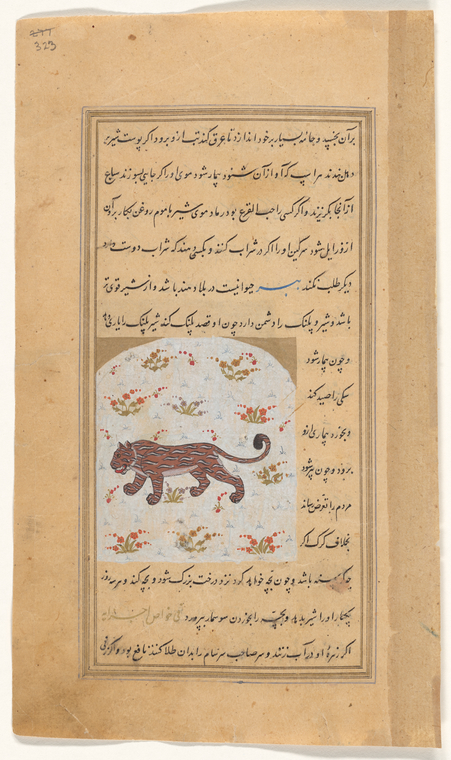 323
بر آن بخسپد و جامه بسیار بر خود اندازد تا عرق کند تب ازو برود اگر پوست شیر بر
دهل بندند هر اسپ که آواز آن شنود بیمار شود موی او را اگر جای بسوزند سباع
از آنجا بگریزند و اگر کسی را حب القرع بود رماد موی شیر با موم روغن بکار برد آن
ازو زایل شود سرگین او را اگر در شراب کنند و بکسی دهند که شراب دوست دارد
دیگر طلب نکند ببر حیوانیست در بلاد هند باشد و از شیر قوی تر
باشد و شیر و پلنگ را دشمن دارد چون او قصد پلنگ کند شیر پلنگ را یاری
و چون بیمار شود
سگی را صید کند
و بخورد بیماری ازو
برود و چون پیر شود
مردم را تعرض رساند
بخلاف گرگ اگر
باشد و چون بچه خواهد کرد نزد درخت بزرگ شود و بچه کند و سه روز
یکبار او را شیر بدهد و بچه را بخوردن سوسمار بپرورد
اگر زهرهٔ او در آب زنند و سر صاحب سرسام را بدان طلا کنند نافع بود و اگر زنی